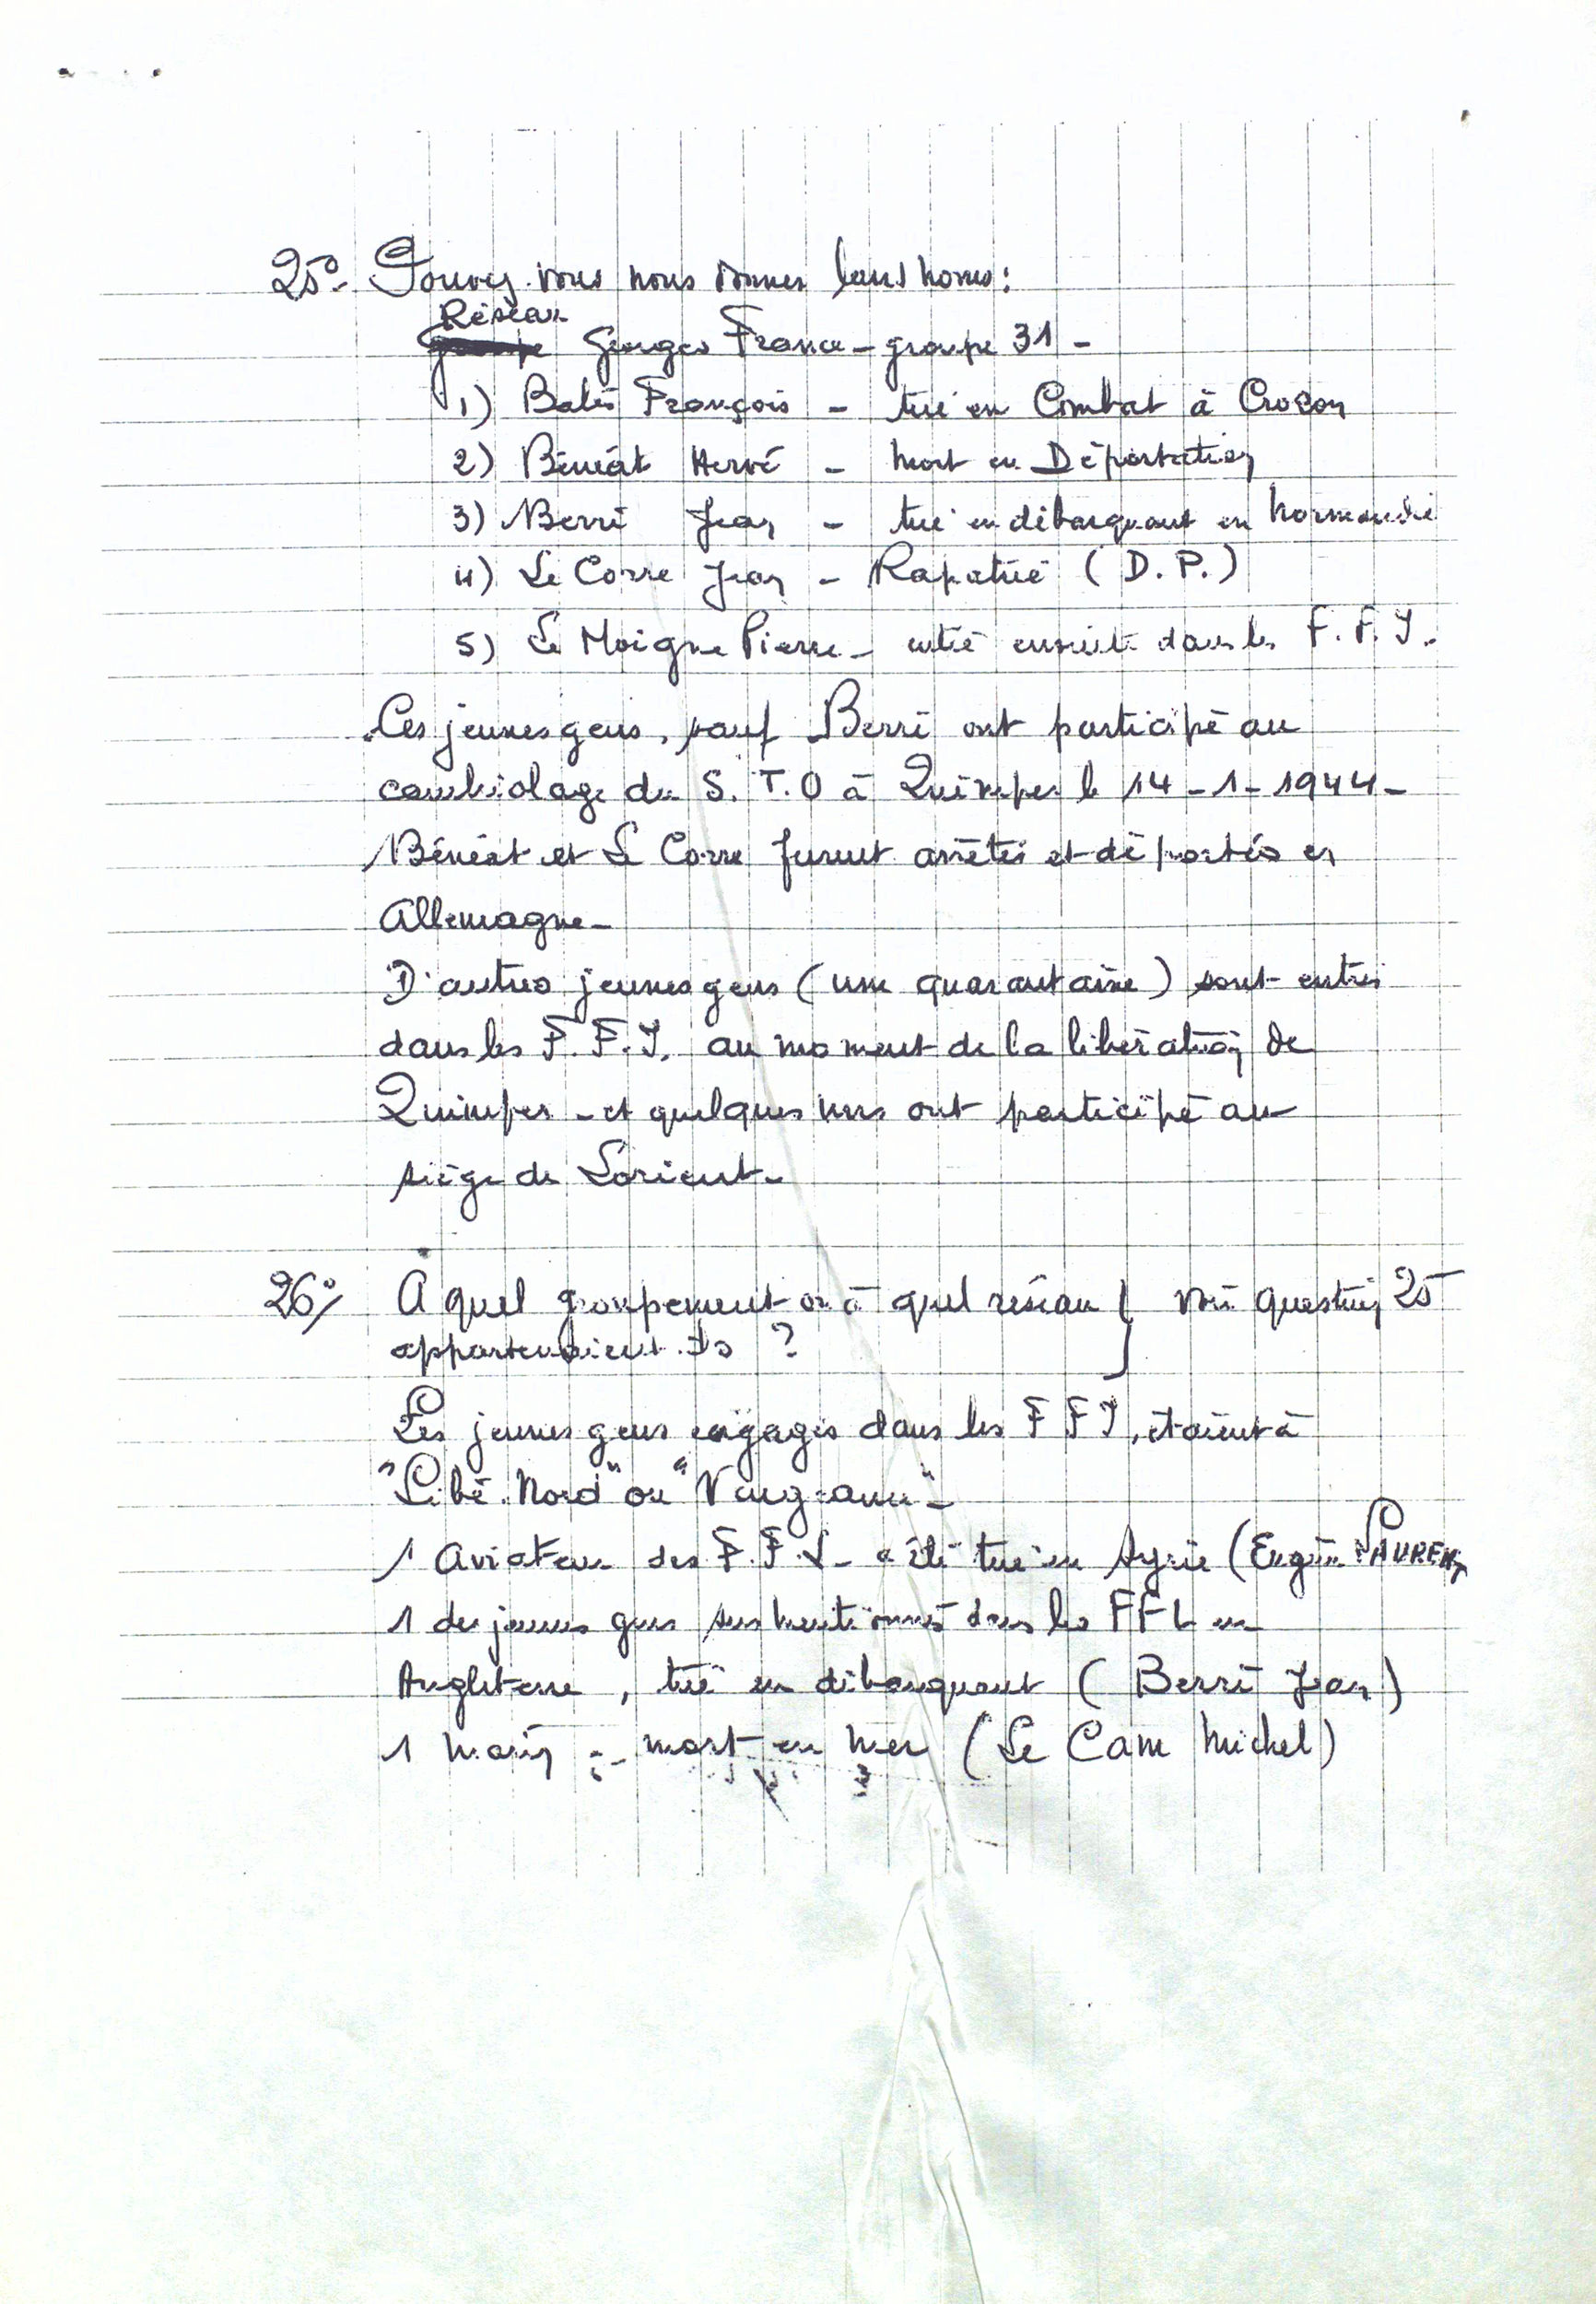 25°- Pouvez-vous nous donner leurs noms :
Réseau
Georges France - groupe 31 -
1) Balès François - tué en Combat à Crozon
2) Bénéat Hervé - mort en Déportation
3) Berri Jean - tué en débarquant en Normandie
4) Le Corre Jean - Rapatrié (D.P.)
5) Le Moigne Pierre - entré ensuite dans les F.F.I.
Ces jeunes gens, sauf Berri ont participé au
cambriolage du S.T.O à Quimper le 14-1-1944-
Bénéat et Le Corre furent arrêtés et déportés en
Allemagne-
D'autres jeunes gens (une quarantaine) sont entrés
dans les F.F.I. au moment de la libération de
Quimper - et quelques uns ont participé au
siège de Lorient-
26°/ A quel groupement ou à quel réseau } voir question 25
appartenaient-ils ?
Les jeunes gens engagés dans les FFI, étaient à
"Libé-Nord" ou "Vengeance"-
1 Aviateur des F.F.L - a été tué en Syrie (Eugène LAURENT
1 des jeunes gens sus mentionnés dans les FFL en
Angleterre, tué en débarquant (Berri Jean)
1 marin - mort en mer (Le Cam Michel)